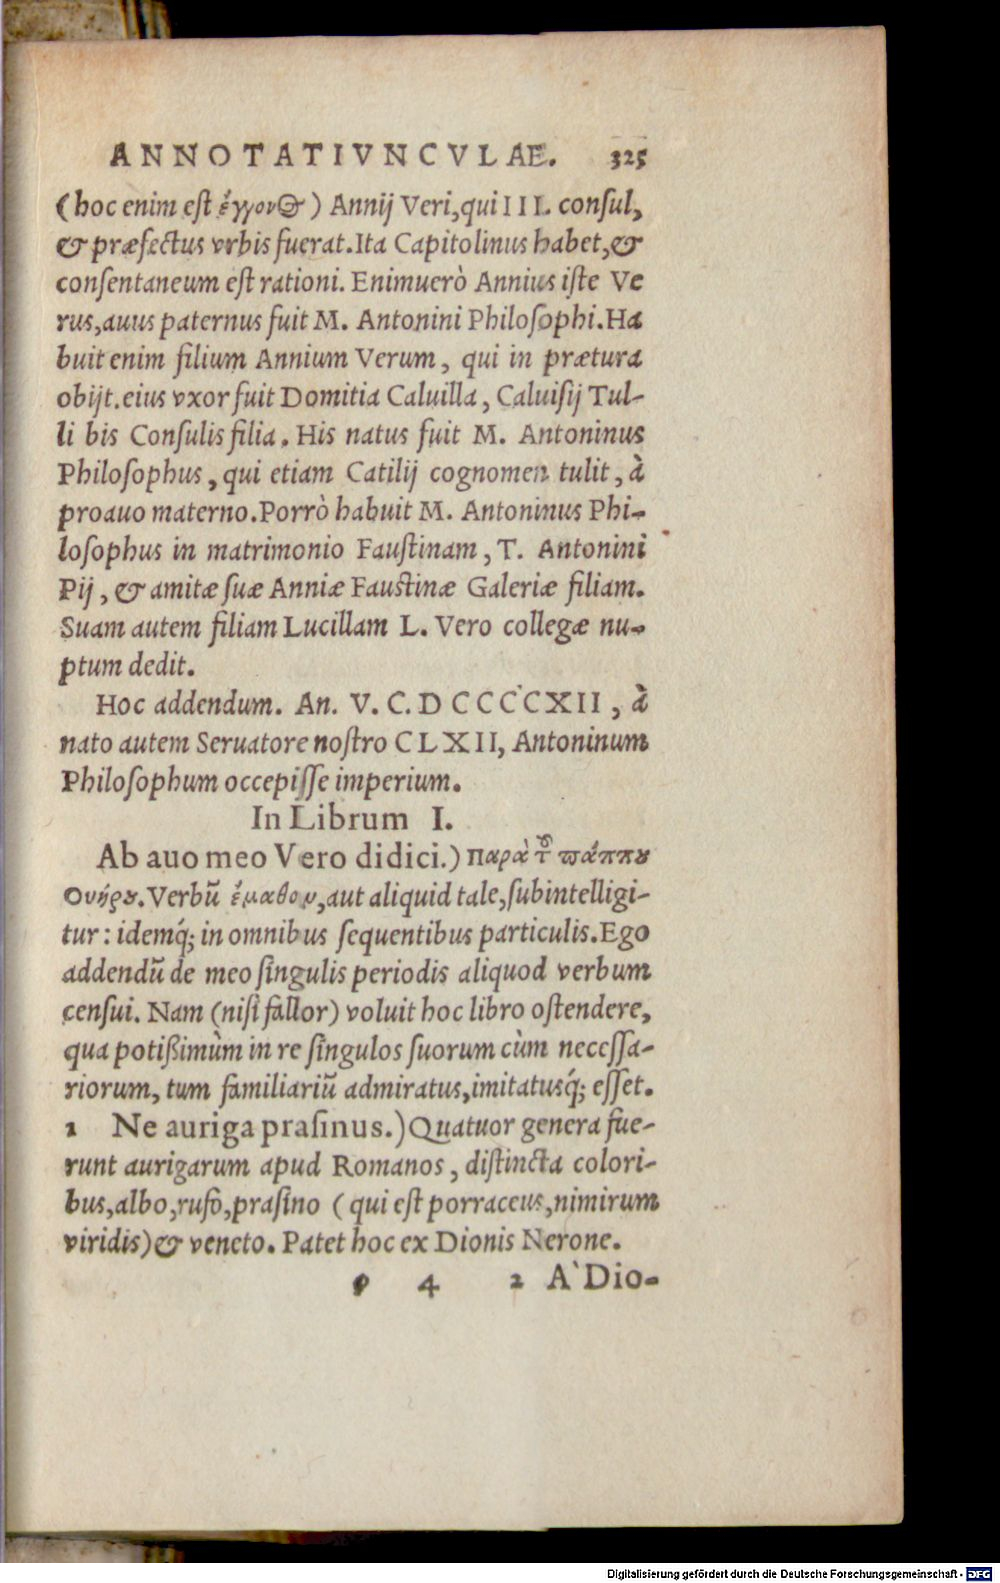 ANNOTATIVNCVLAE. 325
(hoc enim est ἔγγονος) Annij Veri, qui III. consul,
& præfectus vrbis fuerat. Ita Capitolinus habet, &
consentaneum est rationi. Enimuerò Annius iste Ve
rus, auus paternus fuit M. Antonini Philosophi. Ha
buit enim filium Annium Verum, qui in prætura
obijt. eius vxor fuit Domitia Caluilla, Caluisij Tul-
li bis Consulis filia. His natus fuit M. Antoninus
Philosophus, qui etiam Catilij cognomen tulit, à
proauo materno. Porrò habuit M. Antoninus Phi-
losophus in matrimonio Faustinam, T. Antonini
Pij, & amitæ suæ Anniæ Faustinæ Galeriæ filiam.
Suam autem filiam Lucillam L. Vero collegæ nu-
ptum dedit.
Hoc addendum. An. V. C. DCCCCXII, à
nato autem Seruatore nostro CLXII, Antoninum
Philosophum occepisse imperium.
In Librum I.
Ab auo meo Vero didici.) Παρὰ τοῦ πάππου
Ουήρου. Verbū ἔμαθον, aut aliquid tale, subintelligi-
tur: idemq́; in omnibus sequentibus particulis. Ego
addendū de meo singulis periodis aliquod verbum
censui. Nam (nisi fallor) voluit hoc libro ostendere,
qua potißimùm in re singulos suorum cùm necessa-
riorum, tum familiariū admiratus, imitatusq́; esset.
1 Ne auriga prasinus.) Quatuor genera fue-
runt aurigarum apud Romanos, distincta colori-
bus, albo, rufo, prasino (qui est porraceus, nimirum
viridis) & veneto. Patet hoc ex Dionis Nerone.
φ 4 2 A` Dio-
Digitalisierung gefördert durch die Deutsche Forschungsgemeinschaft - DFG